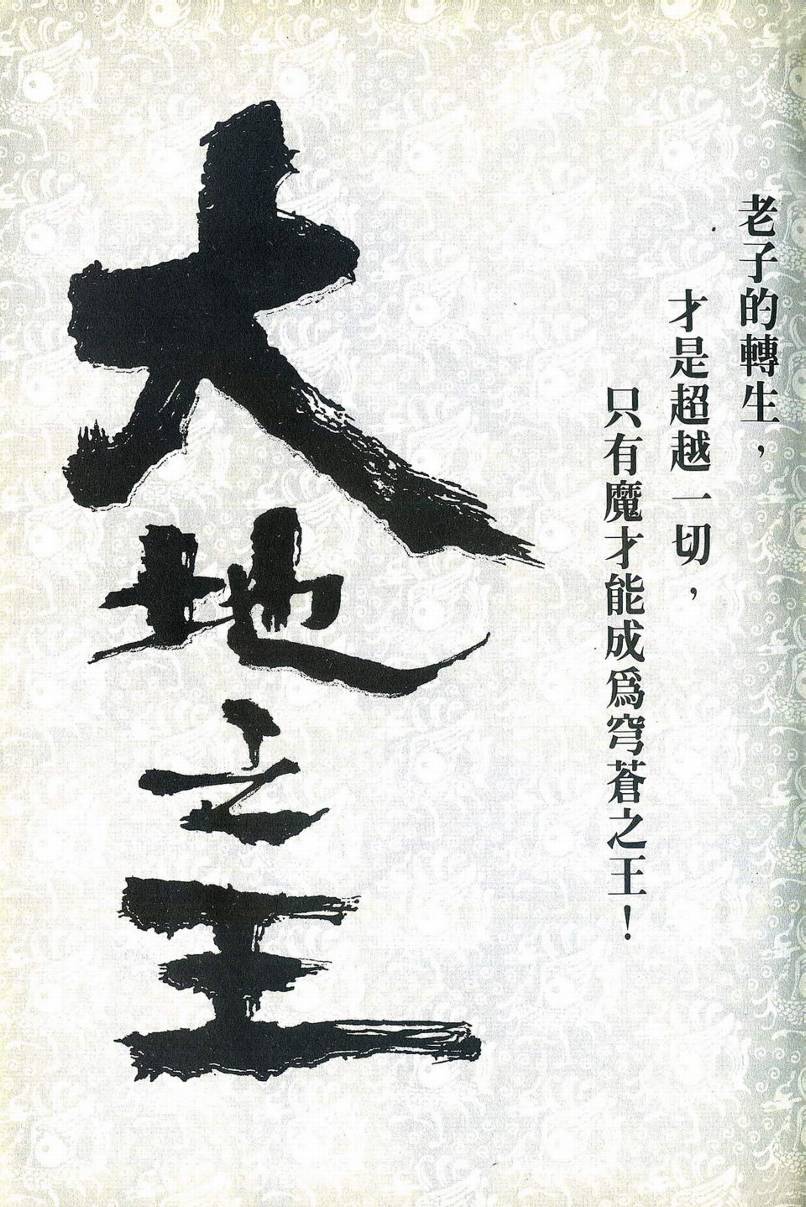 老子的轉生，
才是超越一切，
只有魔才能成爲穹蒼之王！
大地之王